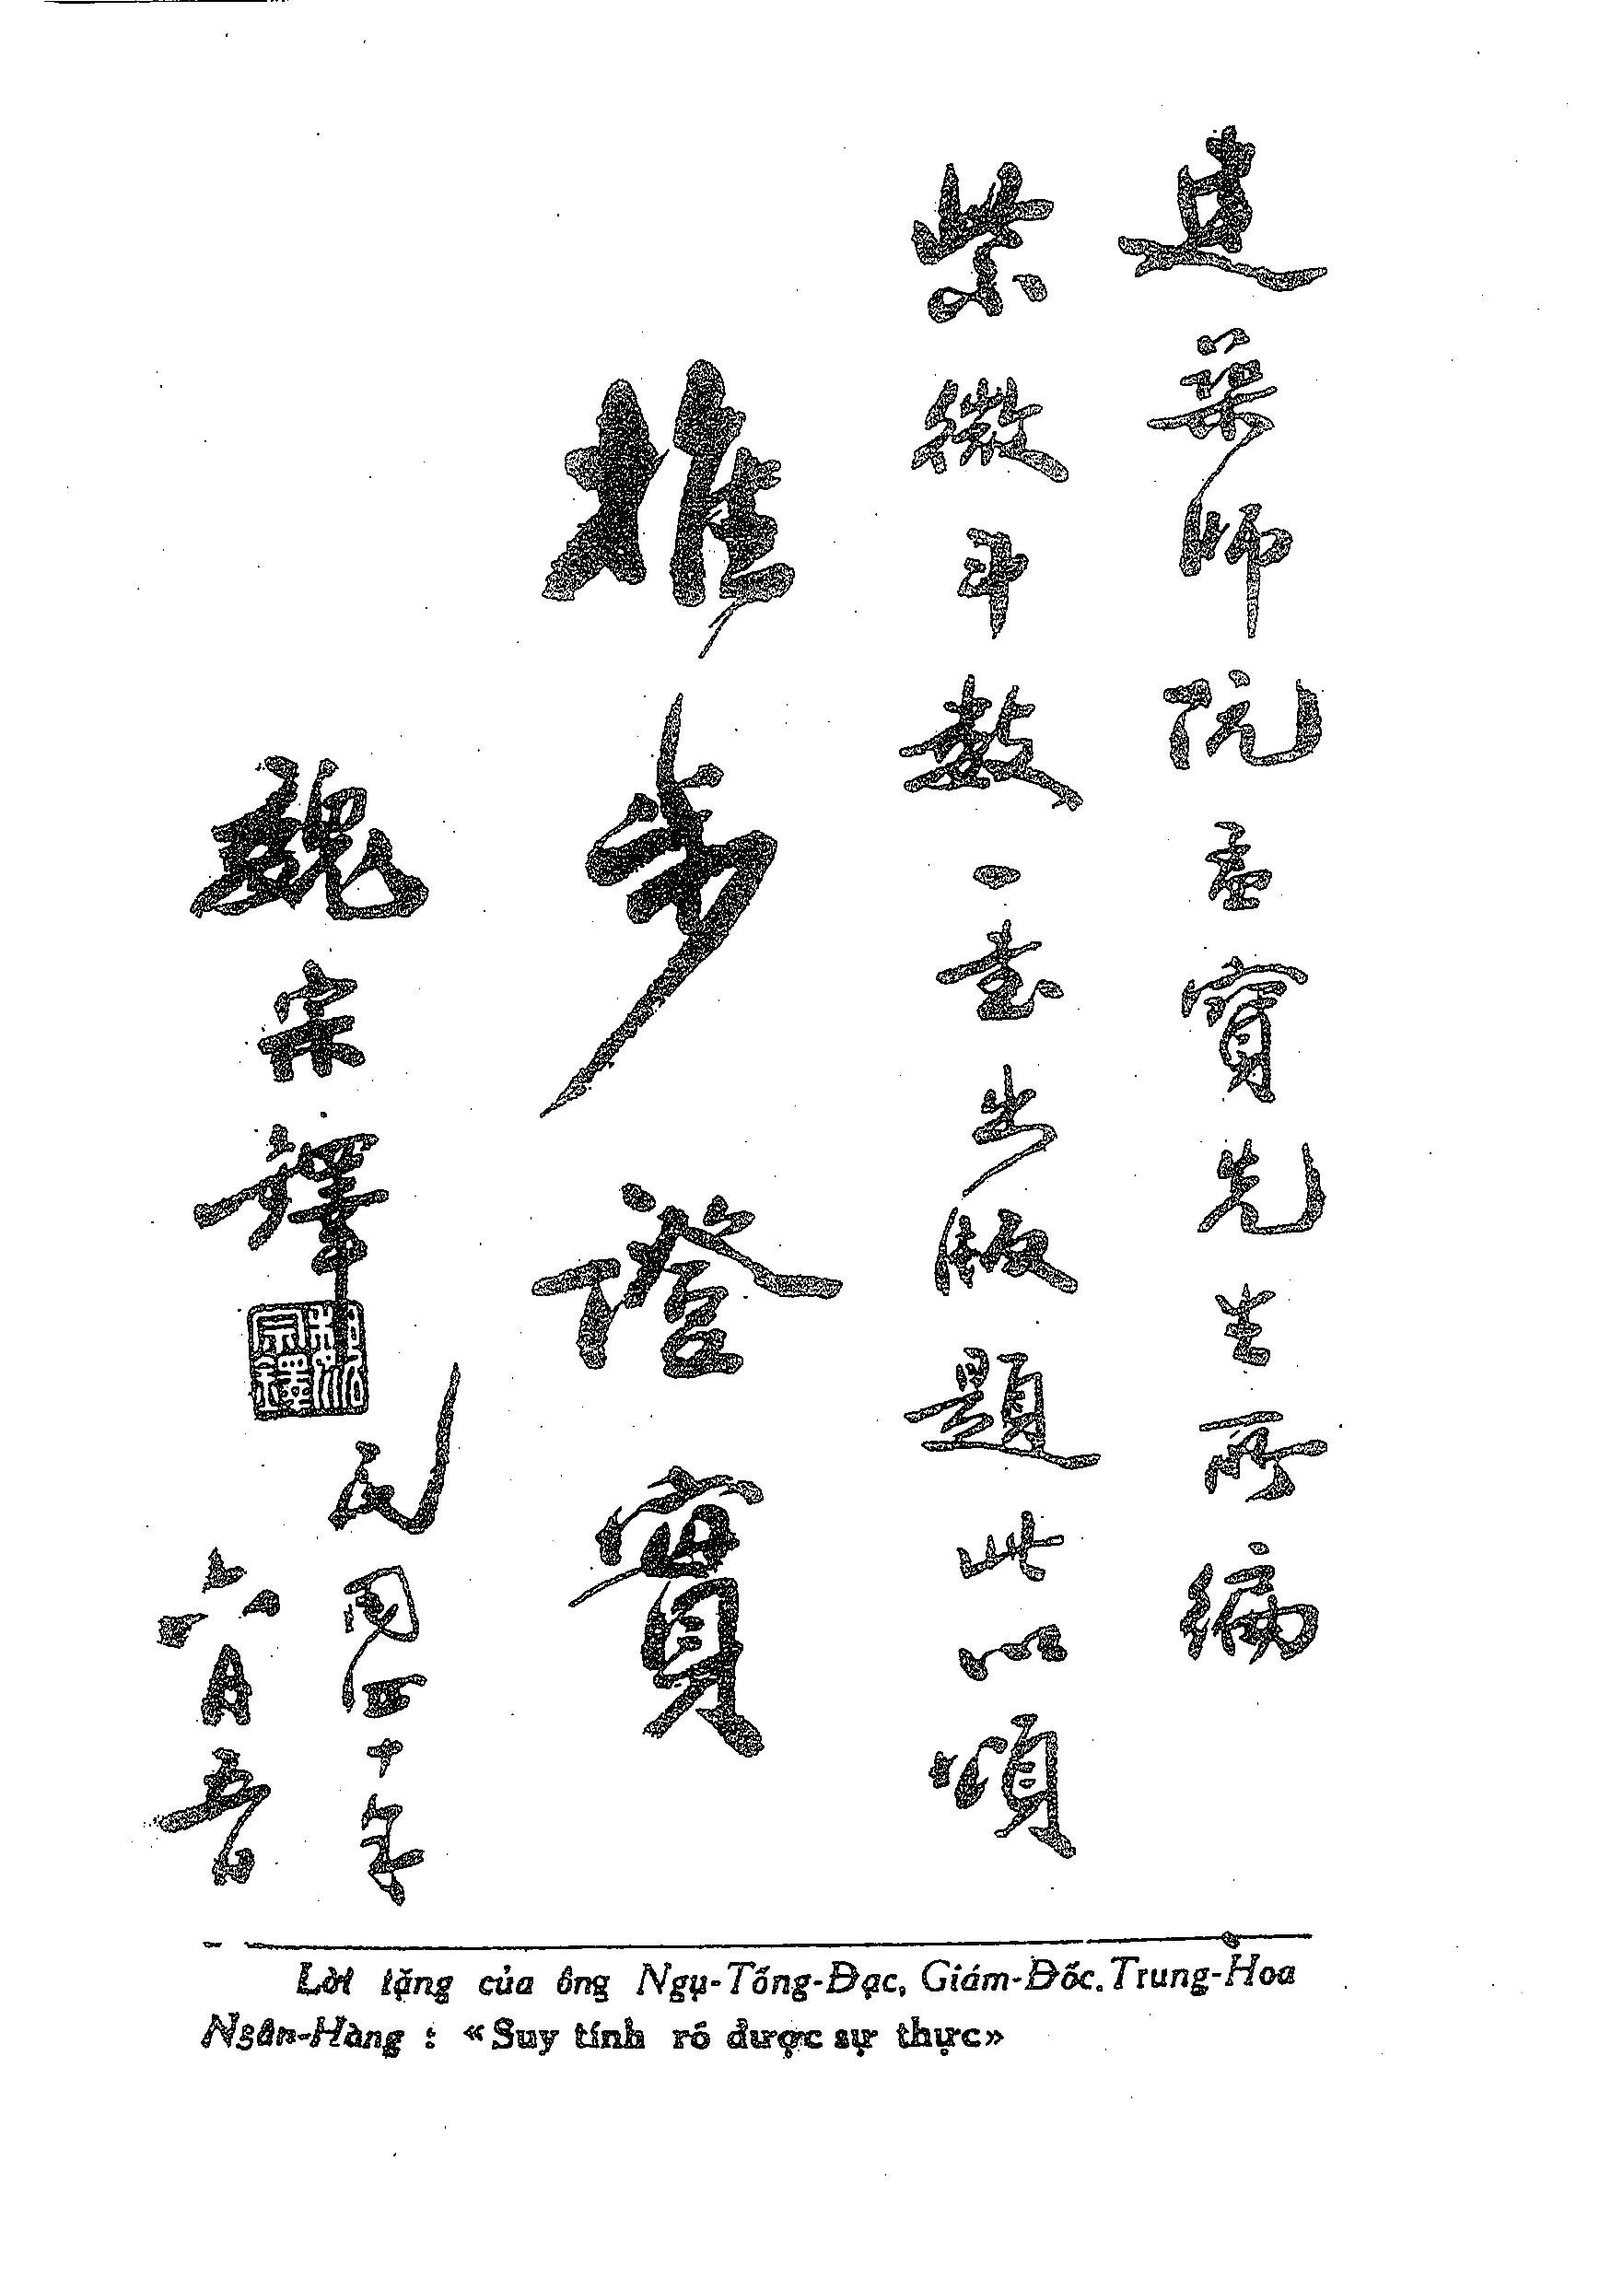 建築師阮孟寶先生所編
紫微斗數一書出版題此以頌
推步證實
魏宗鐸
魏宗鐸
民國四十年
六月
Lời tặng của ông Ngụ-Tống-Đạc, Giám-Đốc Trung-Hoa
Ngân-Hàng : «Suy tính rõ được sự thực»